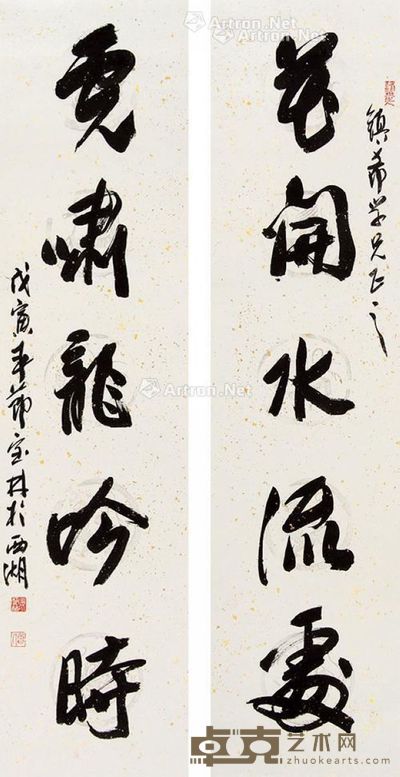 鎮希学兄正之
花開水流處
虎嘯龍吟時
戊寅春節宝林於西湖
Artron.Net
Artron.Net
Artron.Net
Artron.Net
卓克艺术网
zhuokearts.com